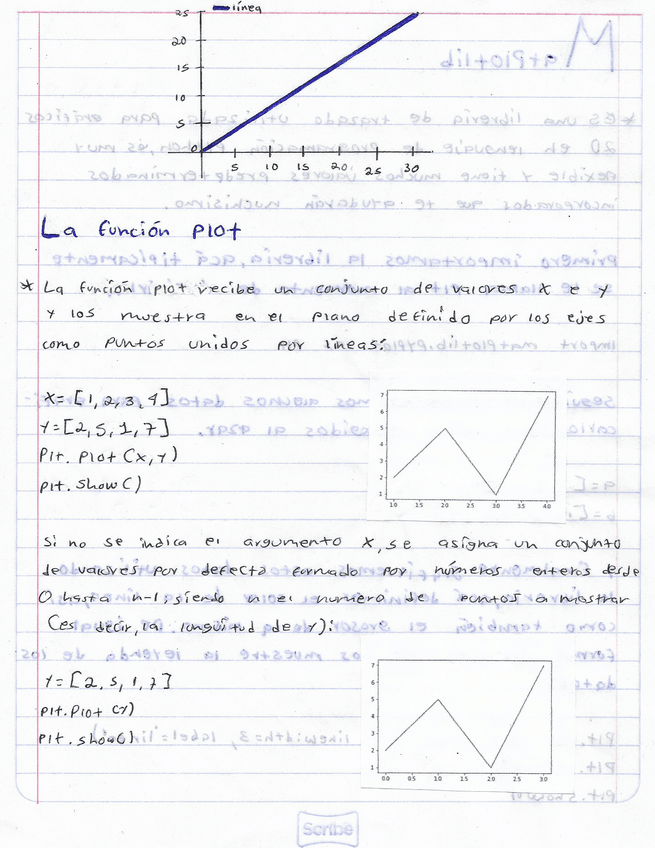 línea
25
20
15
10
5
0
5 10 15 20 25 30
La función plot
* La función plot recibe un conjunto de valores X e Y
y los muestra en el plano definido por los ejes
como puntos unidos por líneas:
X=[1,2,3,4]
Y=[2,5,1,7]
Plt.Plot(x,y)
plt.show()
7
6
5
4
3
2
1
1.0 1.5 2.0 2.5 3.0 3.5 4.0
Si no se indica el argumento X, se asigna un conjunto
de valores por defecto formado por números enteros desde
0 hasta n-1, siendo n el numero de puntos a mostrar
(es decir, la longitud de y):
Y=[2,5,1,7]
plt.Plot(y)
plt.show()
7
6
5
4
3
2
1
0.0 0.5 1.0 1.5 2.0 2.5 3.0
Scribe